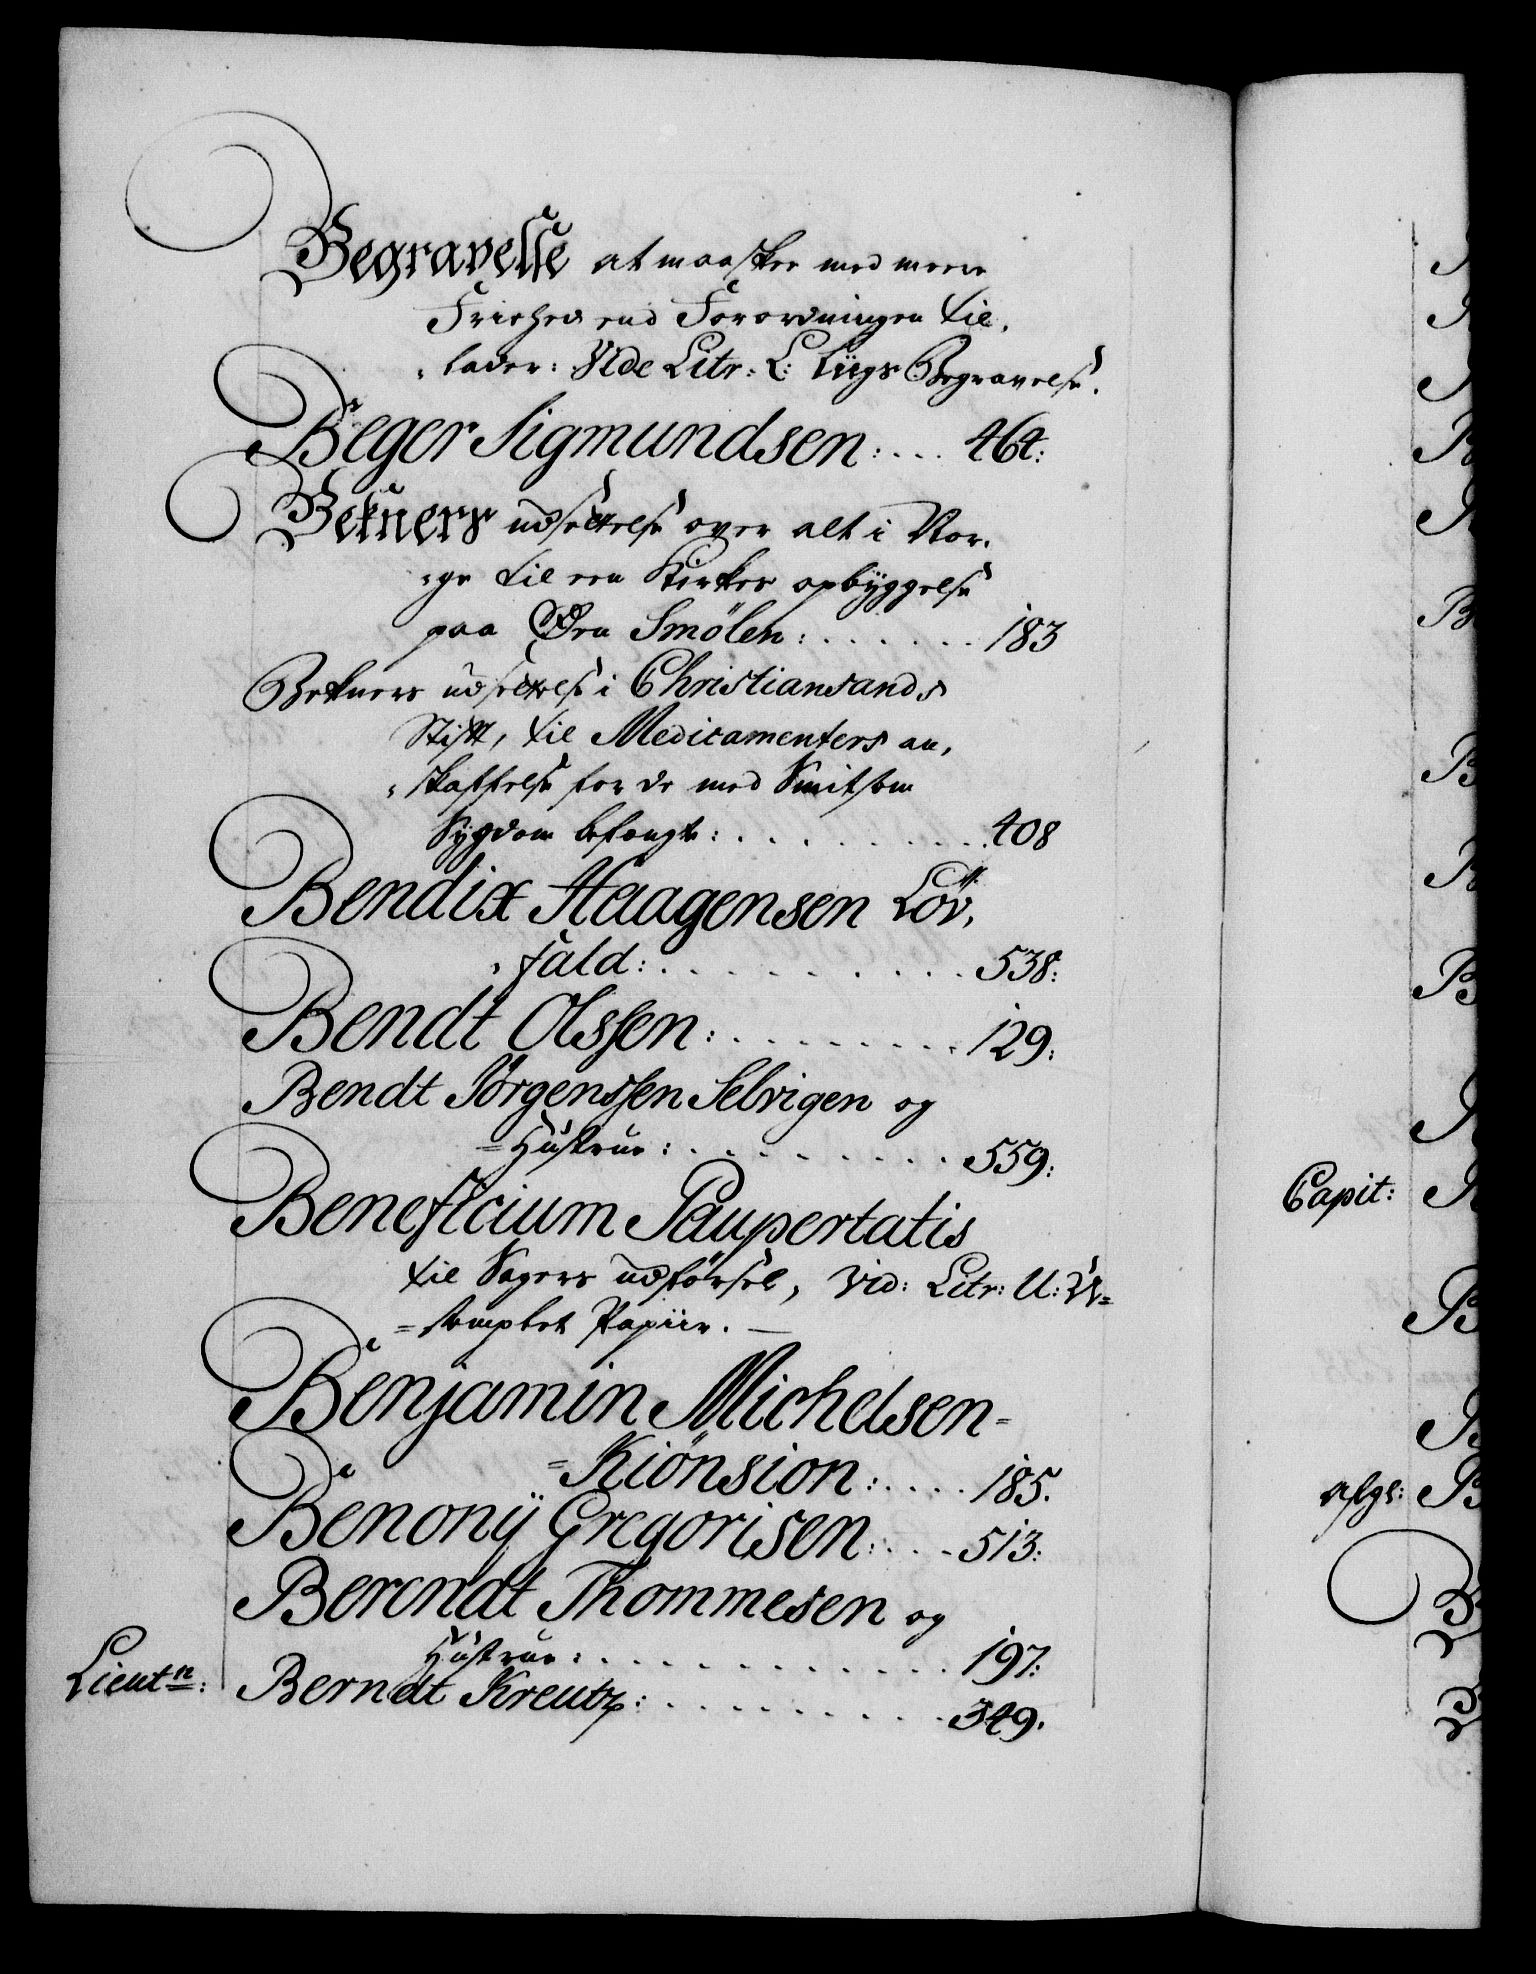 Begravelse at maa skee med meere
Friehed end Forordningen til,
,lader: Vide Litr: L: Liigs Begravelse.
Beger Sigmundsen: ... 464:
Bekners udsettelse over alt i Nor,
,ge til een Kirkes opbÿggelse
paa Øen Smölen: ....... 183
Bekners udsettelse i Christiansands
Stift, til Medicamenters an,
,skaffelse for de med Smitsom
Sÿgdom befængte: .......... 408
Bendix Haagensen Löv,
,fald: .......... 538:
Bendt Olssen: ......... 129:
Bendt Jörgenssen Selvigen og
=Hustrue: ......... 559:
Beneficium Paupertatis
til Sagers udförsel, vid: Litr: U: U=
=stemplet Papiir. —
Benjamin Michelsen=
=Kiönsion: .... 185.
Benonÿ Gregorisen: ... 513:
Berendt Thommesen og
Hustrue: ............ 197:
Lieutn: Berndt Kreutz: .......... 349.
Capit:
afgl: